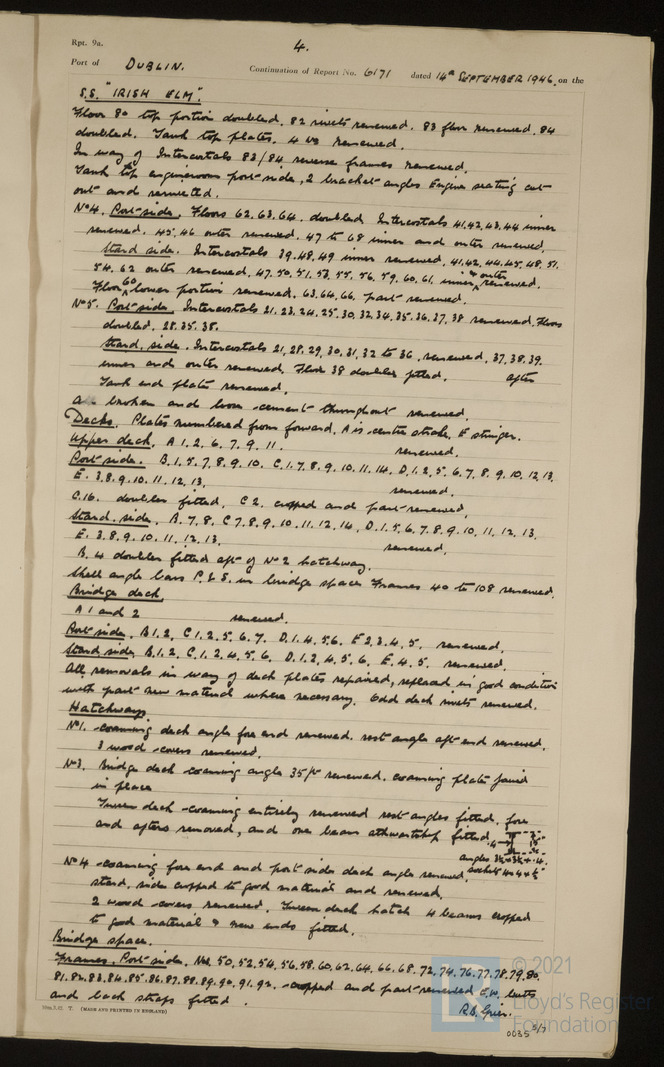 Rpt. 9a.
4.
Port of DUBLIN. Continuation of Report No. 6171 dated 14th SEPTEMBER 1946. on the
S.S. "IRISH ELM".
Floor 80 top portion doubled. 82 rivets renewed. 83 floor renewed. 84
doubled. Tank top plates. 4 renewed.
In way of Intercostals 83/84 reverse frames renewed.
Tank top engineroom port side, 2 bracket angles Engine seating cut
out and reriveted.
No4. Port side. Floors 62.63.64. doubled Intercostals 41.42.43.44 inner
renewed. 45.46 outer renewed. 47 to 68 inner and outer renewed.
Starbd side. Intercostals 39.48.49 inner renewed. 41.42.44.45.48.51.
54.62 outer renewed. 47.50.51.53.55.56.59.60.61. inner & outer renewed.
Floor 60 lower portion renewed. 63.64.66. part renewed.
No5. Port side. Intercostals 21.23.24.25.30.32.34.35.36.37.38 renewed. Floors
doubled. 28.35.38.
Starbd. side. Intercostals 21.28.29.30.31.32 to 36. renewed. 37.38.39.
inner and outer renewed. Floor 38 doubler fitted. after
Tank end plate renewed.
All broken and loose cement throughout renewed.
Decks. Plates numbered from forward. A is centre strake. E stringer.
Upper deck. A 1.2.6.7.9.11. renewed.
Port side. B.1.5.7.8.9.10. C.1.7.8.9.10.11.14. D.1.2.5.6.7.8.9.10.12.13.
E. 3.8.9.10.11.12.13. renewed.
C.16. doubler fitted, C 2. cropped and part renewed.
Starbd. side. B.7.8. C 7.8.9.10.11.12.14. D.1.5.6.7.8.9.10.11.12.13.
E. 3.8.9.10.11.12.13. renewed.
B.4 doubler fitted aft of No 2 hatchway.
Shell angle bars P. & S. in bridge space Frames 40 to 108 renewed.
Bridge deck
A 1 and 2 renewed.
Port side. B 1.2. C 1.2.5.6.7. D.1.4.5.6. E 2.3.4.5. renewed.
Starbd side. B.1.2. C.1.2.4.5.6. D.1.2.4.5.6. E.4.5. renewed.
All removals in way of deck plates repaired, replaced in good condition
with part new material where necessary. Odd deck rivets renewed.
Hatchways
No1. coaming deck angle fore end renewed. rest angle aft end renewed.
3 wood covers renewed.
No3. Bridge deck coaming angle 35 ft renewed. coaming plate faired
in place
Tween deck coaming entirely renewed rest angles fitted, fore
and afters removed, and one beam athwartship fitted.
angles 3½ x 3½ x .4.
No 4 coaming fore end and port side deck angle renewed. sockets 4 x 4 x ½
starbd. side cropped to good material and renewed.
2 wood covers renewed. Tween deck hatch 4 beams cropped
to good material & new ends fitted.
Bridge space.
Frames. Port side. Nos. 50.52.54.56.58.60.62.64.66.68.72.74.76.77.78.79.80.
81.82.83.84.85.86.87.88.89.90.91.92. cropped and part renewed E.W. butts
and back straps fitted.
R.B. Grier.
(MADE AND PRINTED IN ENGLAND)
0035 5/7
© 2021
Lloyd's Register
Foundation